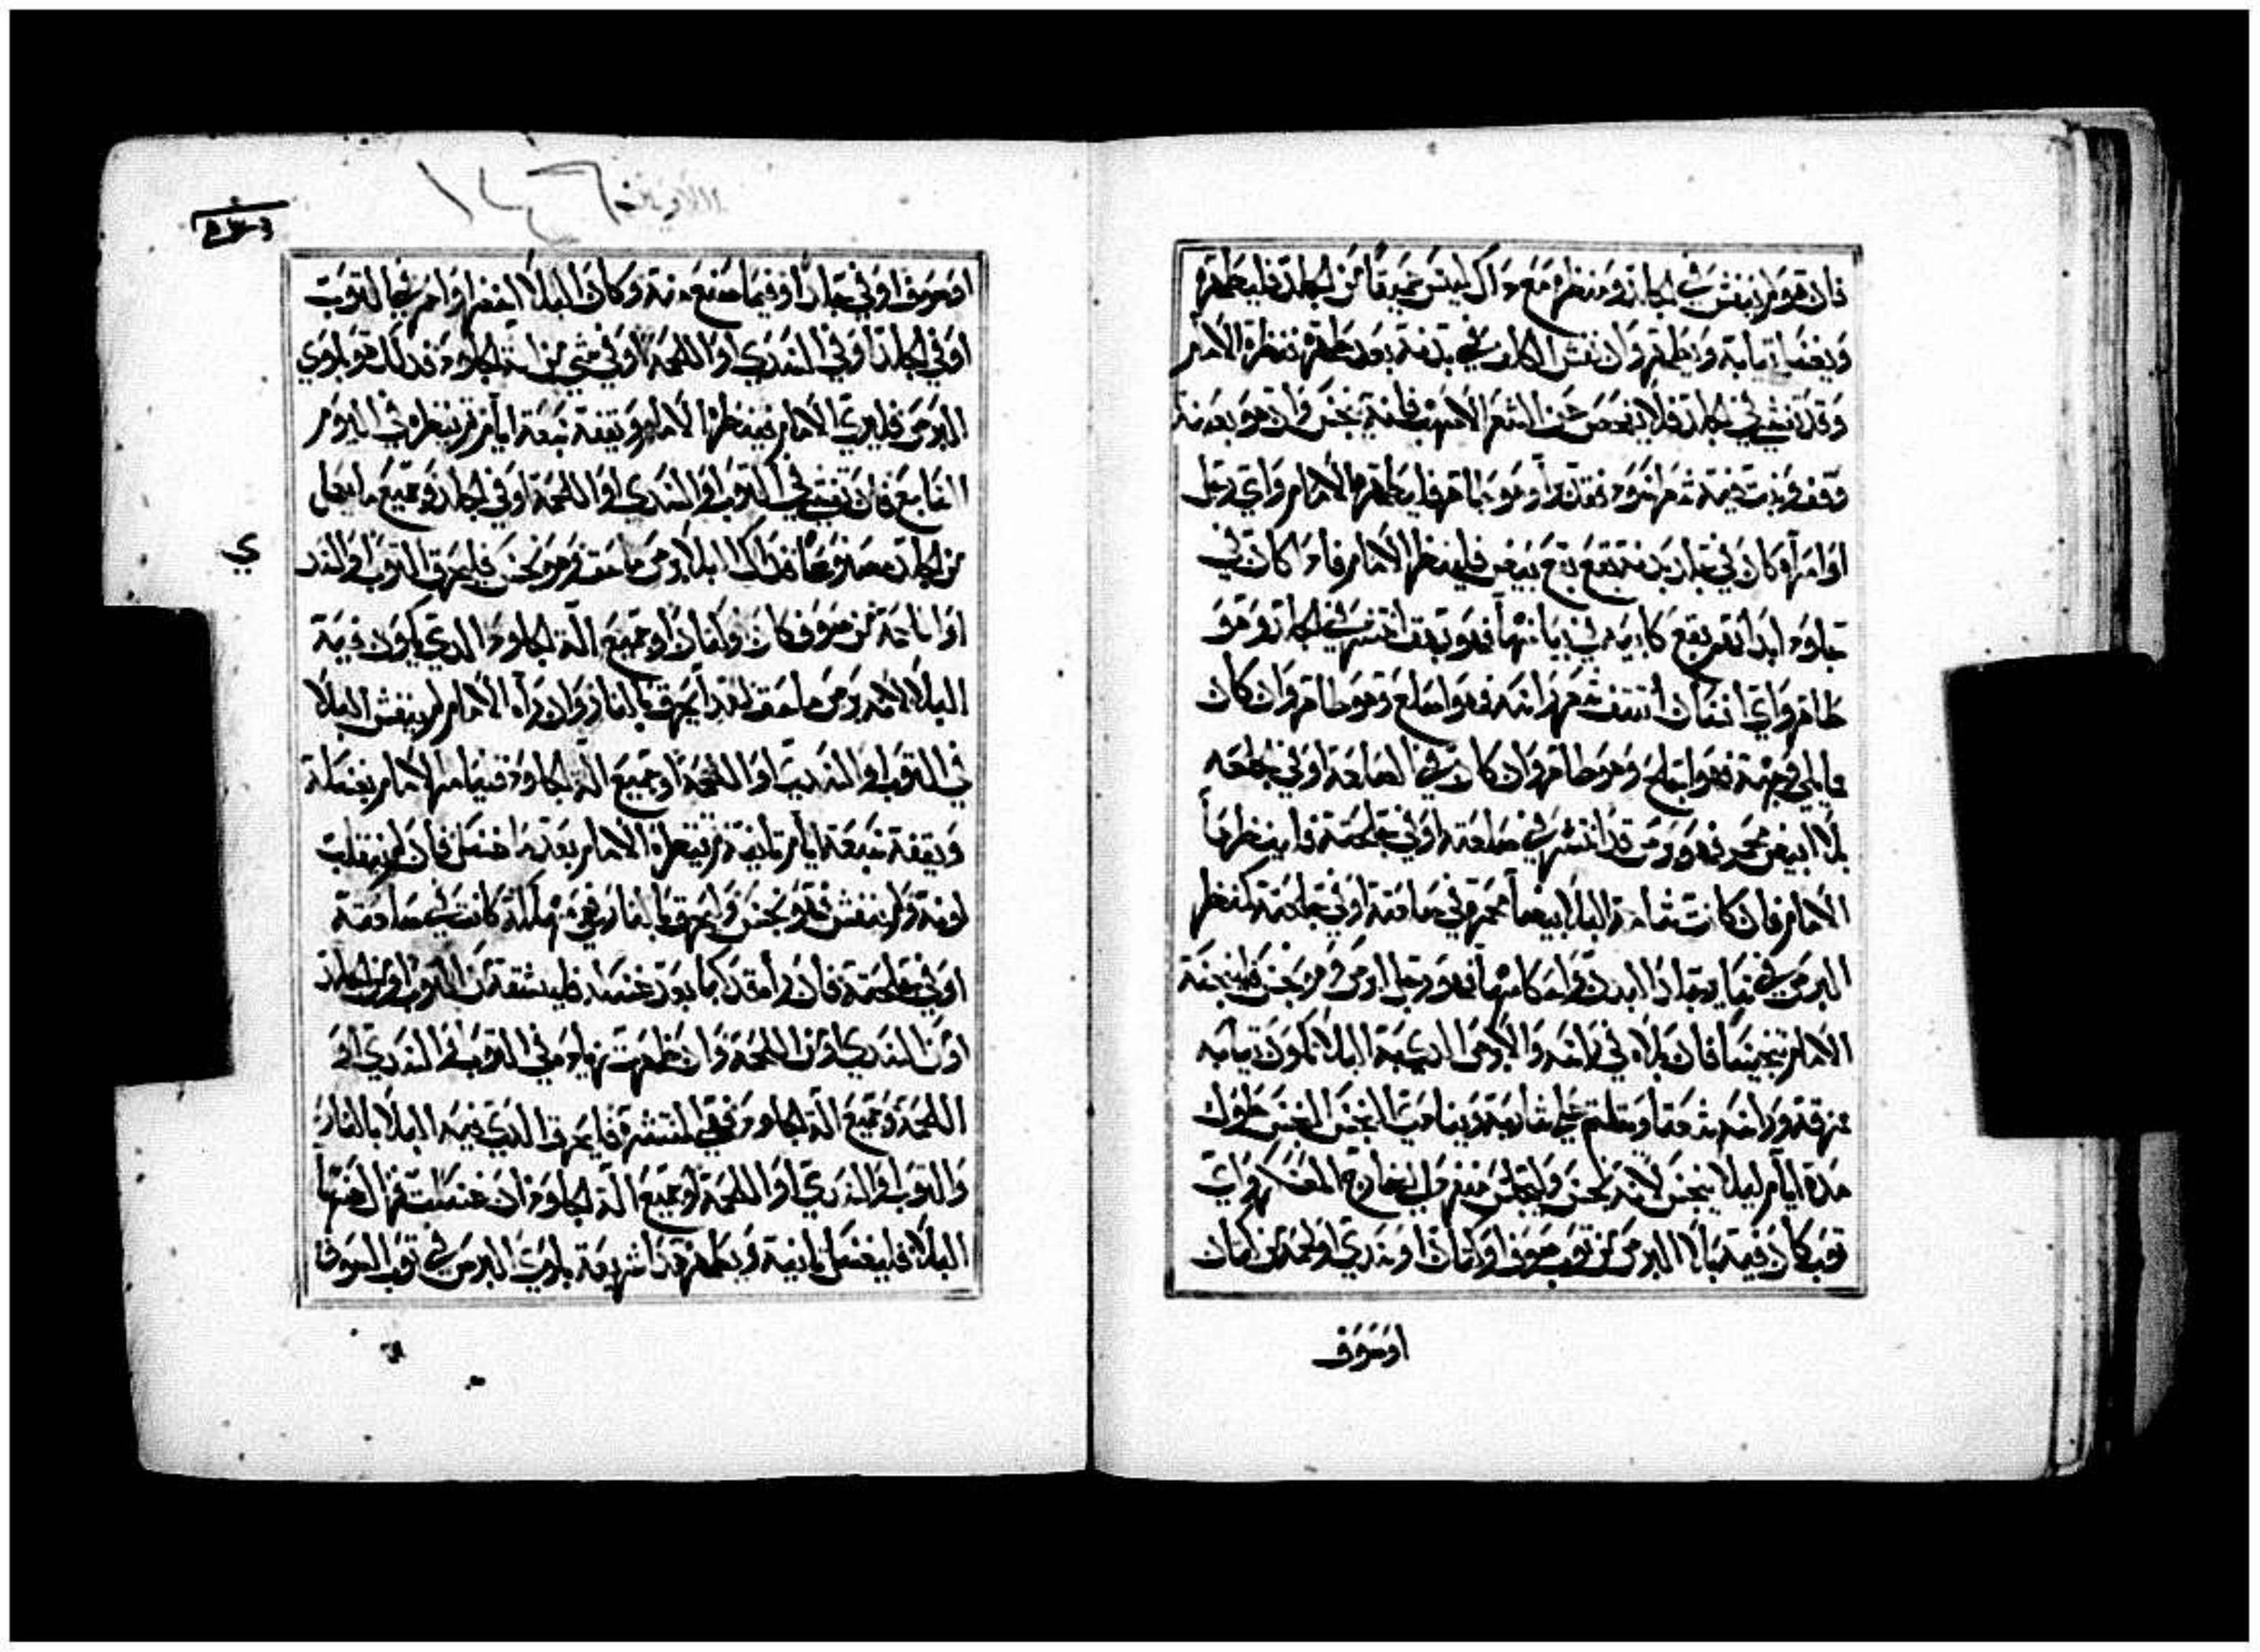 فان هو لم ينفش في الجلد ومنظره مع ذاك ليس عميقا من الجلد فليطهره
ويغسل ثيابه ويطهر وان نفش الكلف في بدنه بعد طهره فنظره الامام
وقد نفشى في الجلد فلا يفحص عن الشعر الاصهب فانه نجس وان هو بعد منه
وقف ونبت فيه شعر اسود فقد برا وهو طاهر فليطهره الامام واي رجل
او امراه كان في جلد بدنه بقع بقع بيض فلينظر الامام فاذا كان في
جلود ابدانهم بقع كابيه في بياضها فهو بهق انتشر في الجلد وهو
طاهر واي انسان انتتف شعر راسه فهو اصلع وهو طاهر وان كان
مما يلي وجهه فهو اجلح وهو طاهر وان كان في الصلعه او في الجلحه
بلاء ابيض محمر فهو برص قد انتشر في صلعته او في جلحته فلينظرها
الامام فان كانت شامه البلاء بيضا محمره في صلعته او في جلحته كمنظر
البرص في ساير جلد البدن واحكامها فهو رجل ابرص وهو نجس فلينجسه
الامام تنجيسا فان بلاه في راسه والابرص الذي به البلاء تكون ثيابه
مخرقه وراسه شعثا ويتلثم على شاربه وينادي النجس النجس طول
مده ايام ليلا ينجس لانه نجس وليجلس منفردا في خارج المعسكر واي
ثوب كان فيه بلاء البرص من ثوب صوف او كتان او سدي او لحمه من كتان
او صوف
او صوف او في جلد او فيما صنع منه وكان البلاء اخضر او احمر في الثوب
او في الجلد او في السدي او اللحمه او في شي من آلة الجلود فذلك هو بلوي
البرص فليري الامام فينظر الامام ويقفه سبعه ايام ثم ينظره في اليوم
السابع فان تفشي في الثوب او السدي او اللحمه او في الجلد وجميع ما يعمل
من الجلد مصنوعا فذاك البلاء برص ماحق وهو نجس فليحرق الثوب او السد
ي
او اللحمه من صوف كان او كتان او جميع آلة الجلود الذي يكون فيه
البلاء لانه برص ماحق لهذا يحرق بالنار وان راه الامام لم ينفش البلاء
في الثوب او السدي او اللحمه او جميع آلة الجلود فيامر الامام بغسله
ويقفه سبعه ايام ثانيه ثم ينظره الامام بعد ما اغتسل فان لم ينقلب
لونه ولم ينفش فهو نجس وليحرق بالنار فهي مهلكه كانت في صلعته
او في جلحته فان راه قد كبا بعد غسله فليشقه من الثوب او من الجلد
او من السدي او من اللحمه وان ظهرت ايضا في الثوب او السدي او
اللحمه وجميع آلة الجلود فهي منتشره فليحرق الذي فيه البلاء بالنار
والثوب او السدي او اللحمه او جميع آلة الجلود ان غسلت فزال عنها
البلاء فليغسل ثانيه ويطهر هذا شريعه بلوى البرص في ثوب الصوف